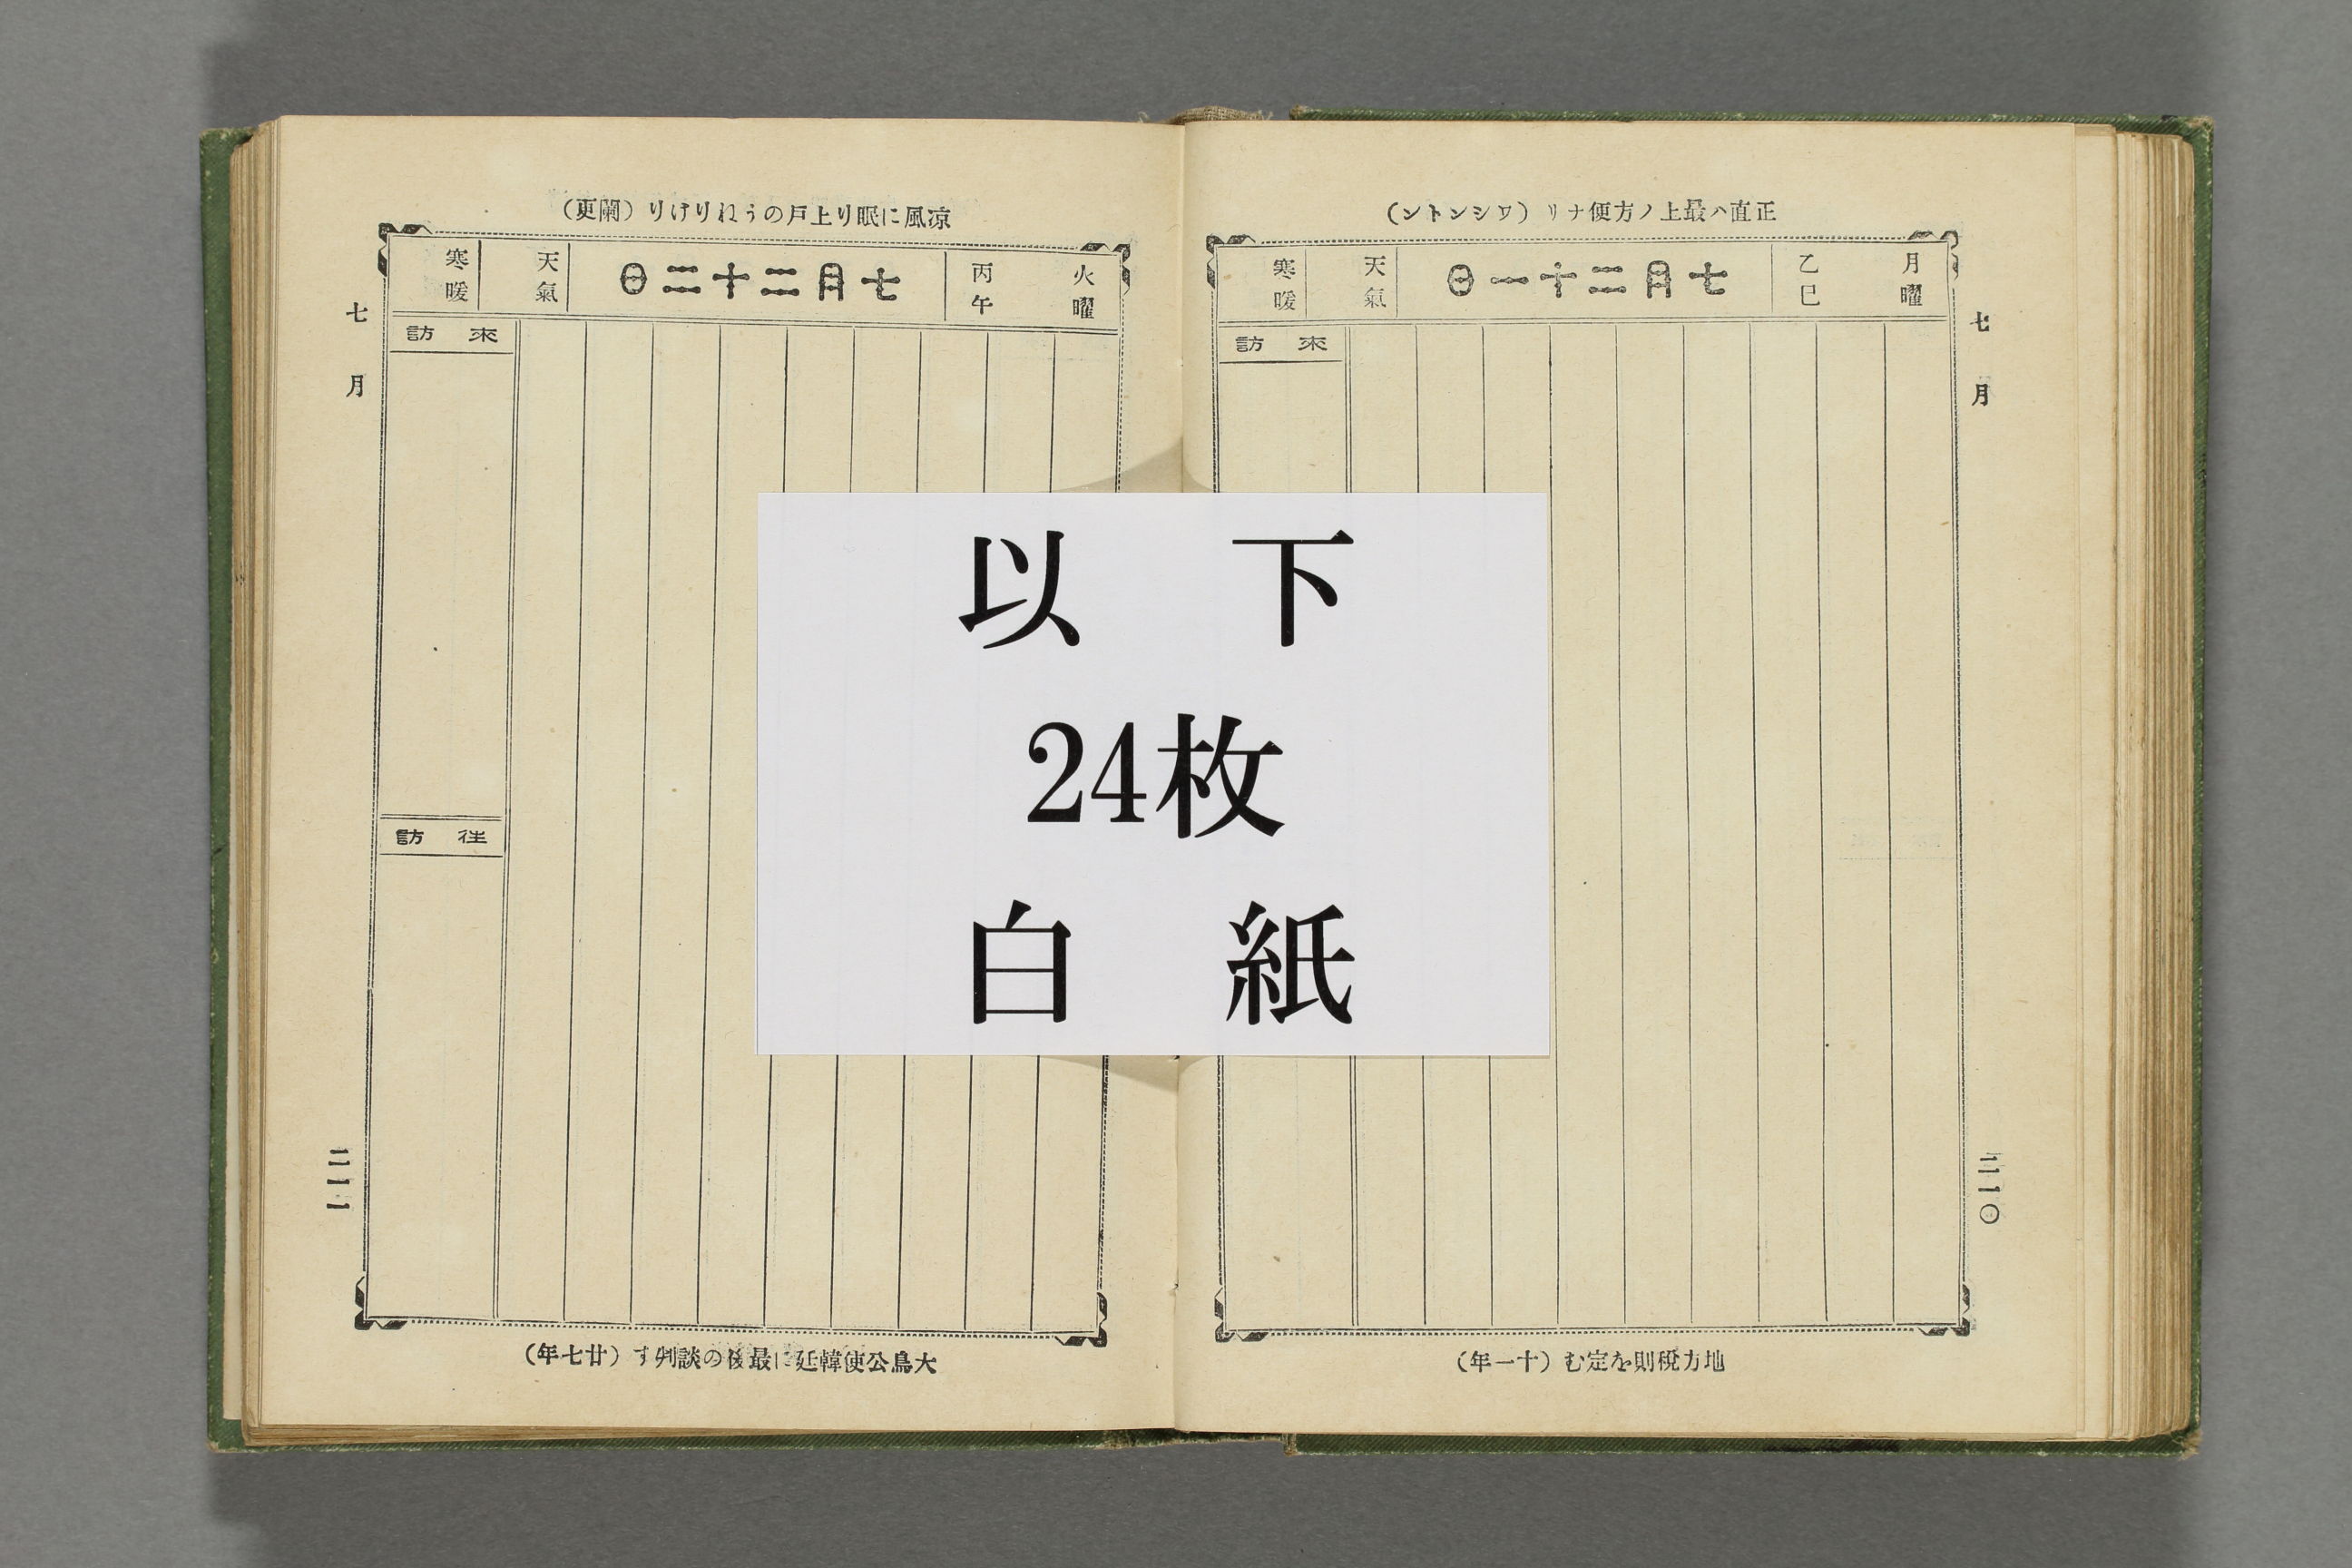 正直ハ最上ノ方便ナリ(ワシントン)
月曜
乙巳
七月二十一日
天氣
寒暖
來訪
七月
二一〇
地方稅則を定む(十一年)
凉風に眠り上戸のうねりけり(闌更)
火曜
丙午
七月二十二日
天氣
寒暖
來訪
往訪
七月
二一一
大鳥公使韓廷に最後の談判す(廿七年)
以下
24枚
白紙